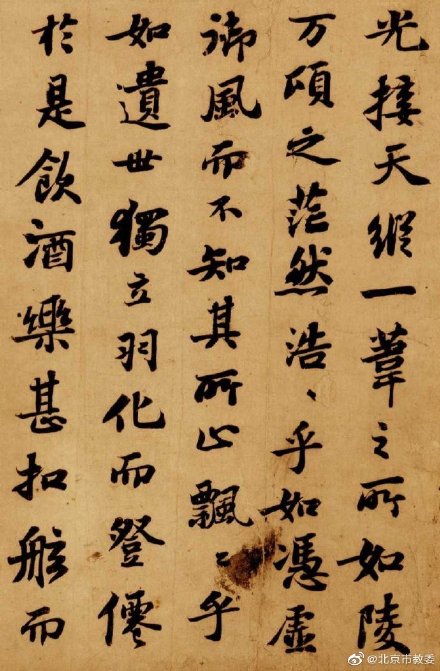 光接天縱一葦之所如陵
万頃之茫然浩〻乎如馮虛
御風而不知其所止飄〻乎
如遺世獨立羽化而登僊
於是飲酒樂甚扣舷而
@北京市教委